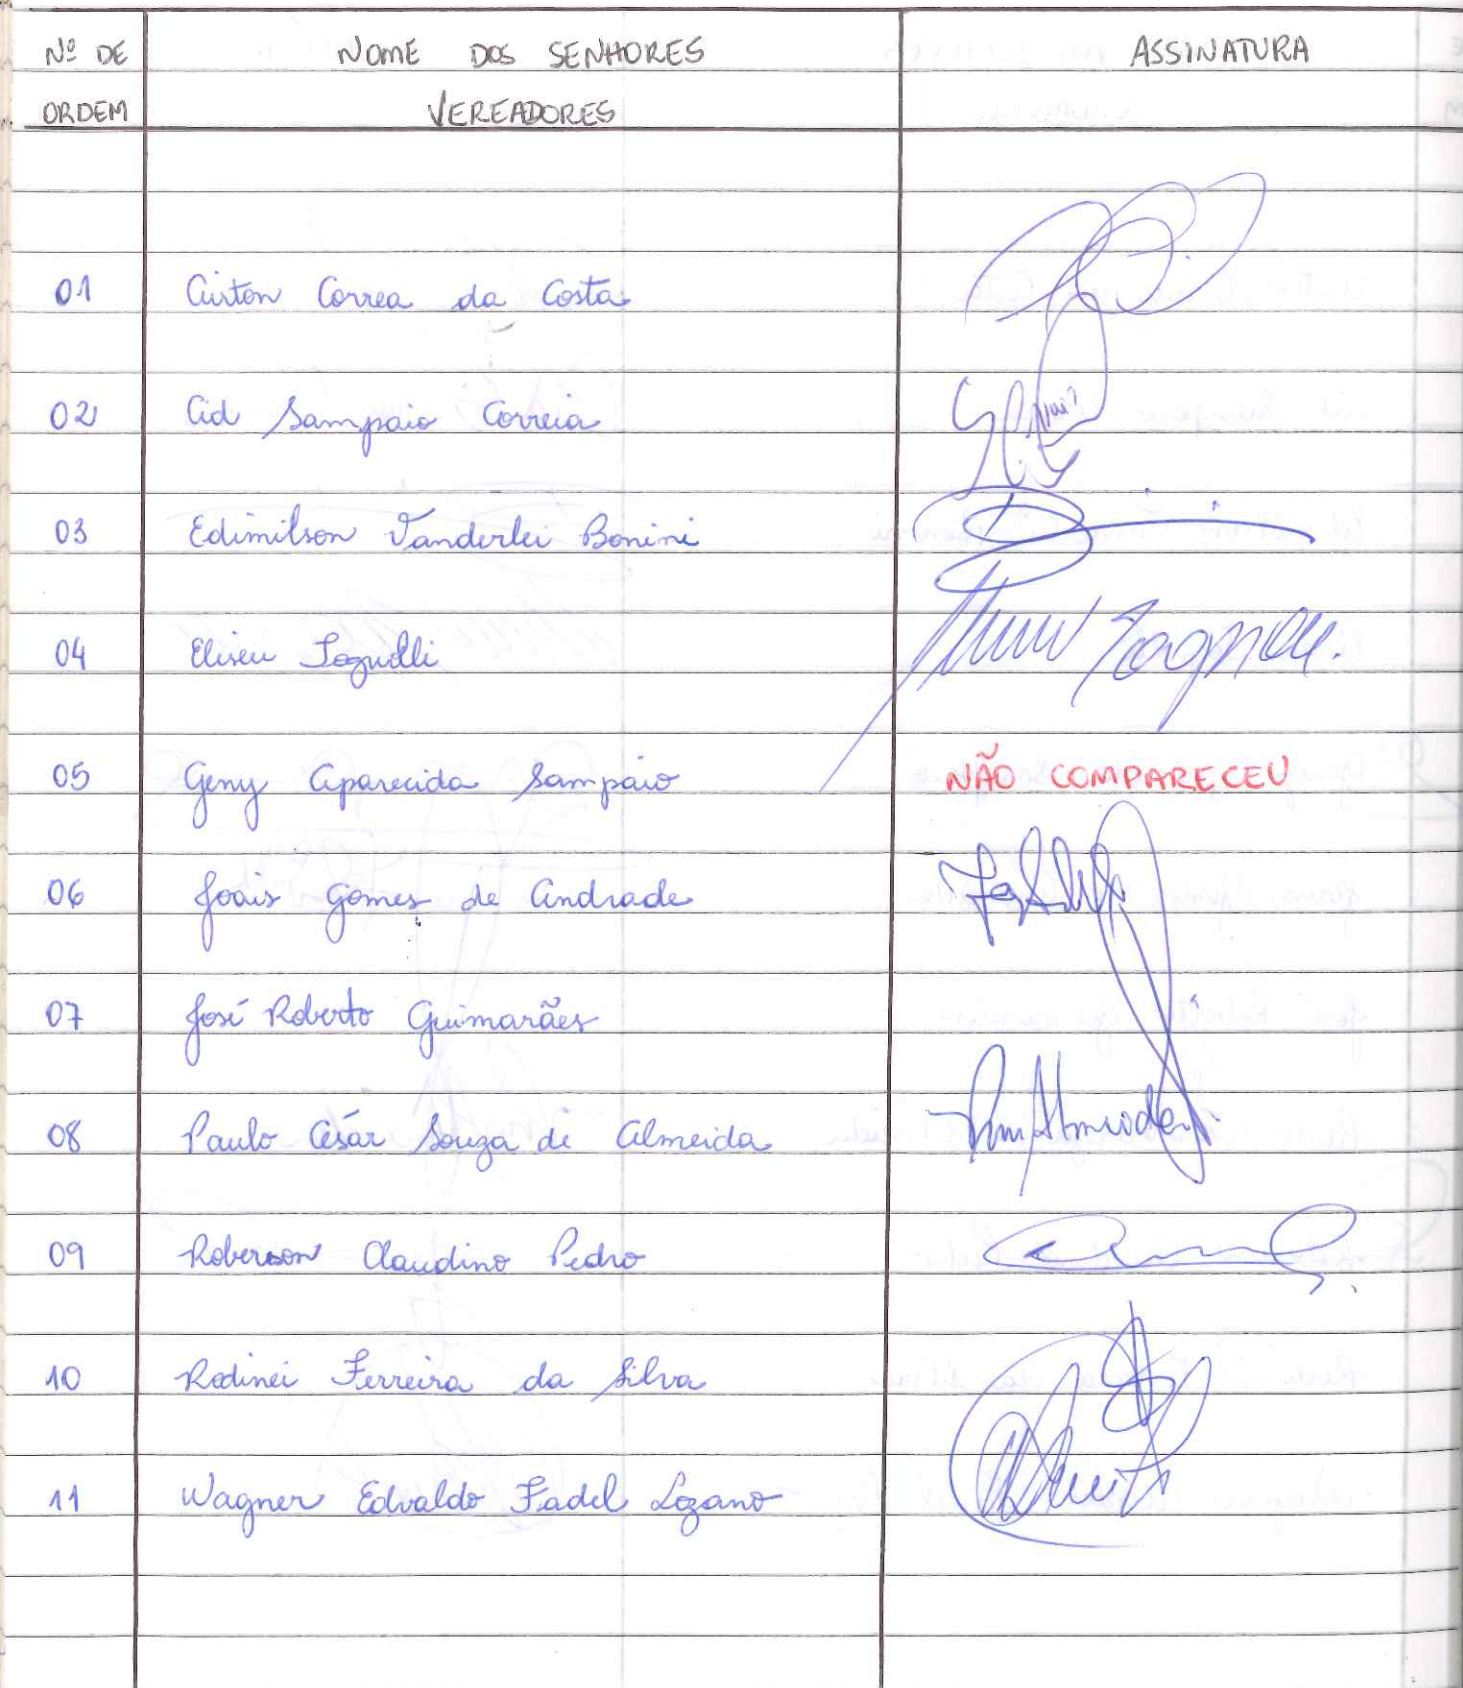 Nº DE NOME DOS SENHORES ASSINATURA
ORDEM VEREADORES
01 Airton Correa da Costa
02 Cid Sampaio Correia
03 Edimilson Vanderlei Bonini
04 Eliseu
05 Geny Aparecida Sampaio NÃO COMPARECEU
06 Joais Gomes de Andrade
07 José Roberto Guimarães
08 Paulo César Souza de Almeida
09 Roberson Claudino Pedro
10 Rodinei Ferreira da Silva
11 Wagner Edvaldo Fadel Lozano